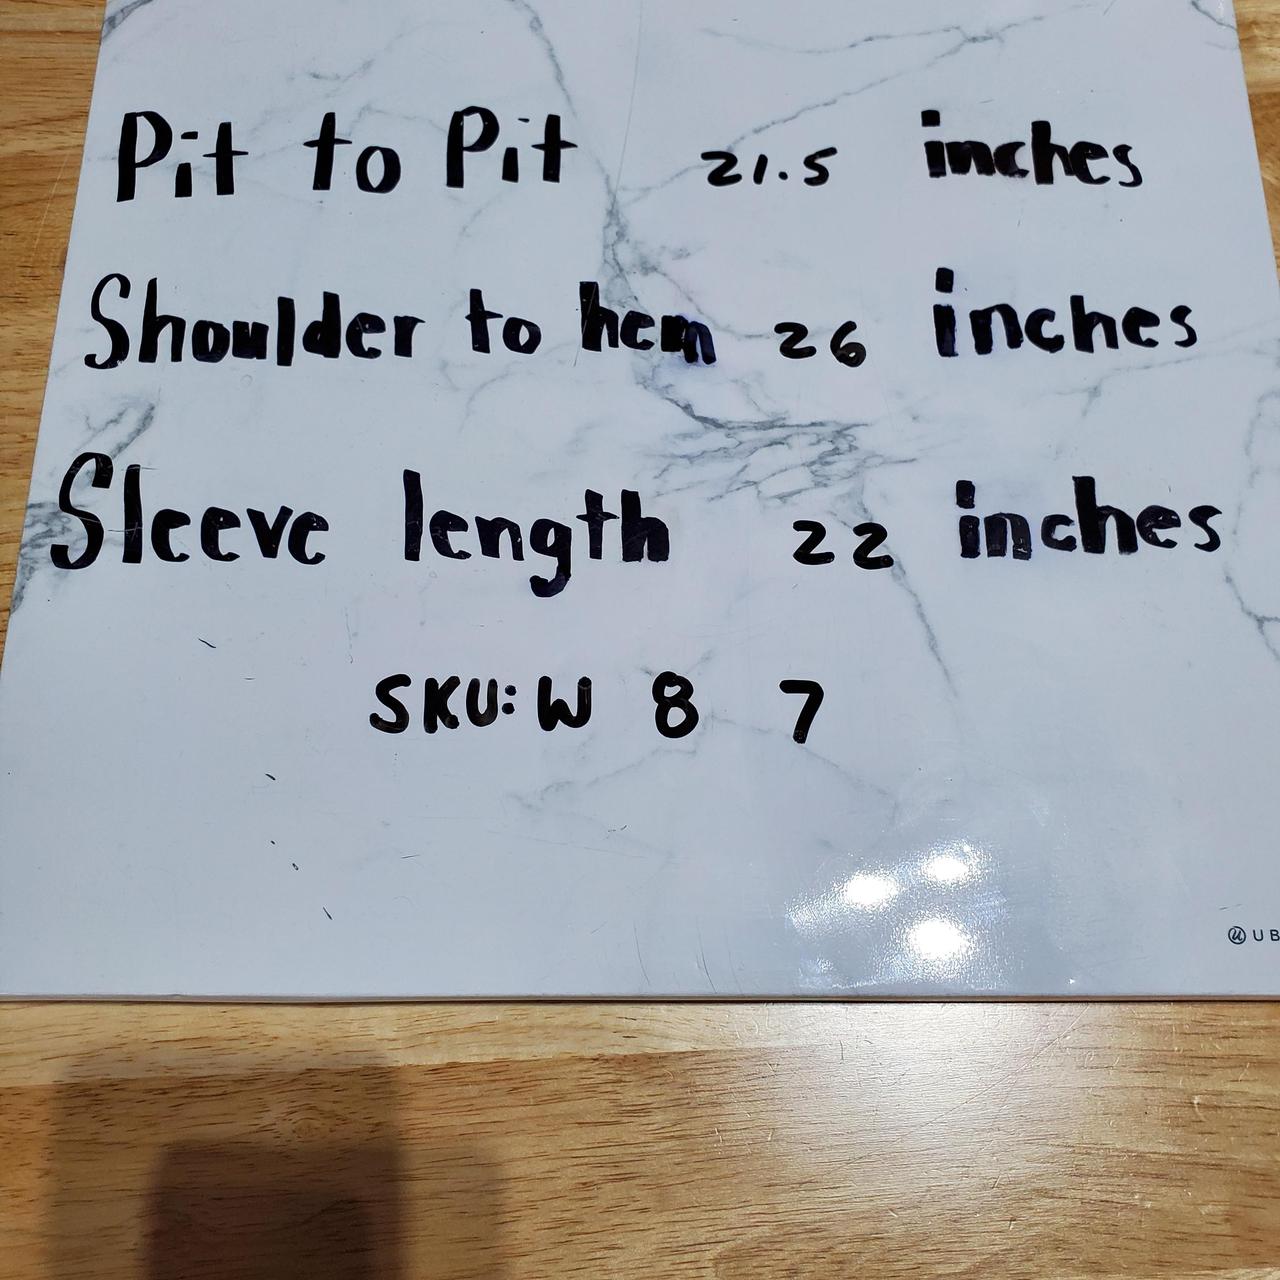 Pit to Pit 21.5 inches
Shoulder to hem 26 inches
Sleeve length 22 inches
SKU: W 8 7